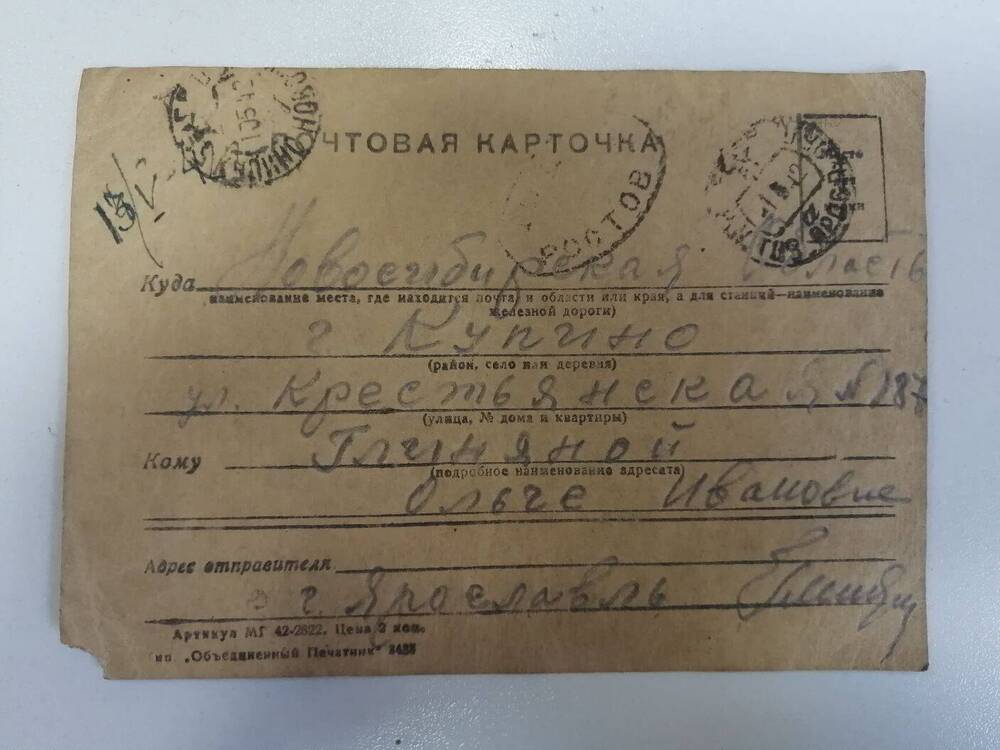 ПОЧТОВАЯ КАРТОЧКА
13/V
РОСТОВ
Куда Новосибирская область
наименование места, где находится почта, и области или края, а для станций—наименование
железной дороги)
г. Купино
(район, село или деревня)
ул. Крестьянская № 187
(улица, № дома и квартиры)
Кому Глиняной
(подробное наименование адресата)
Ольге Ивановне
Адрес отправителя
г. Ярославль
Артикул МГ 42-2622. Цена 3 коп.
тип. „Объединенный Печатник" 3438